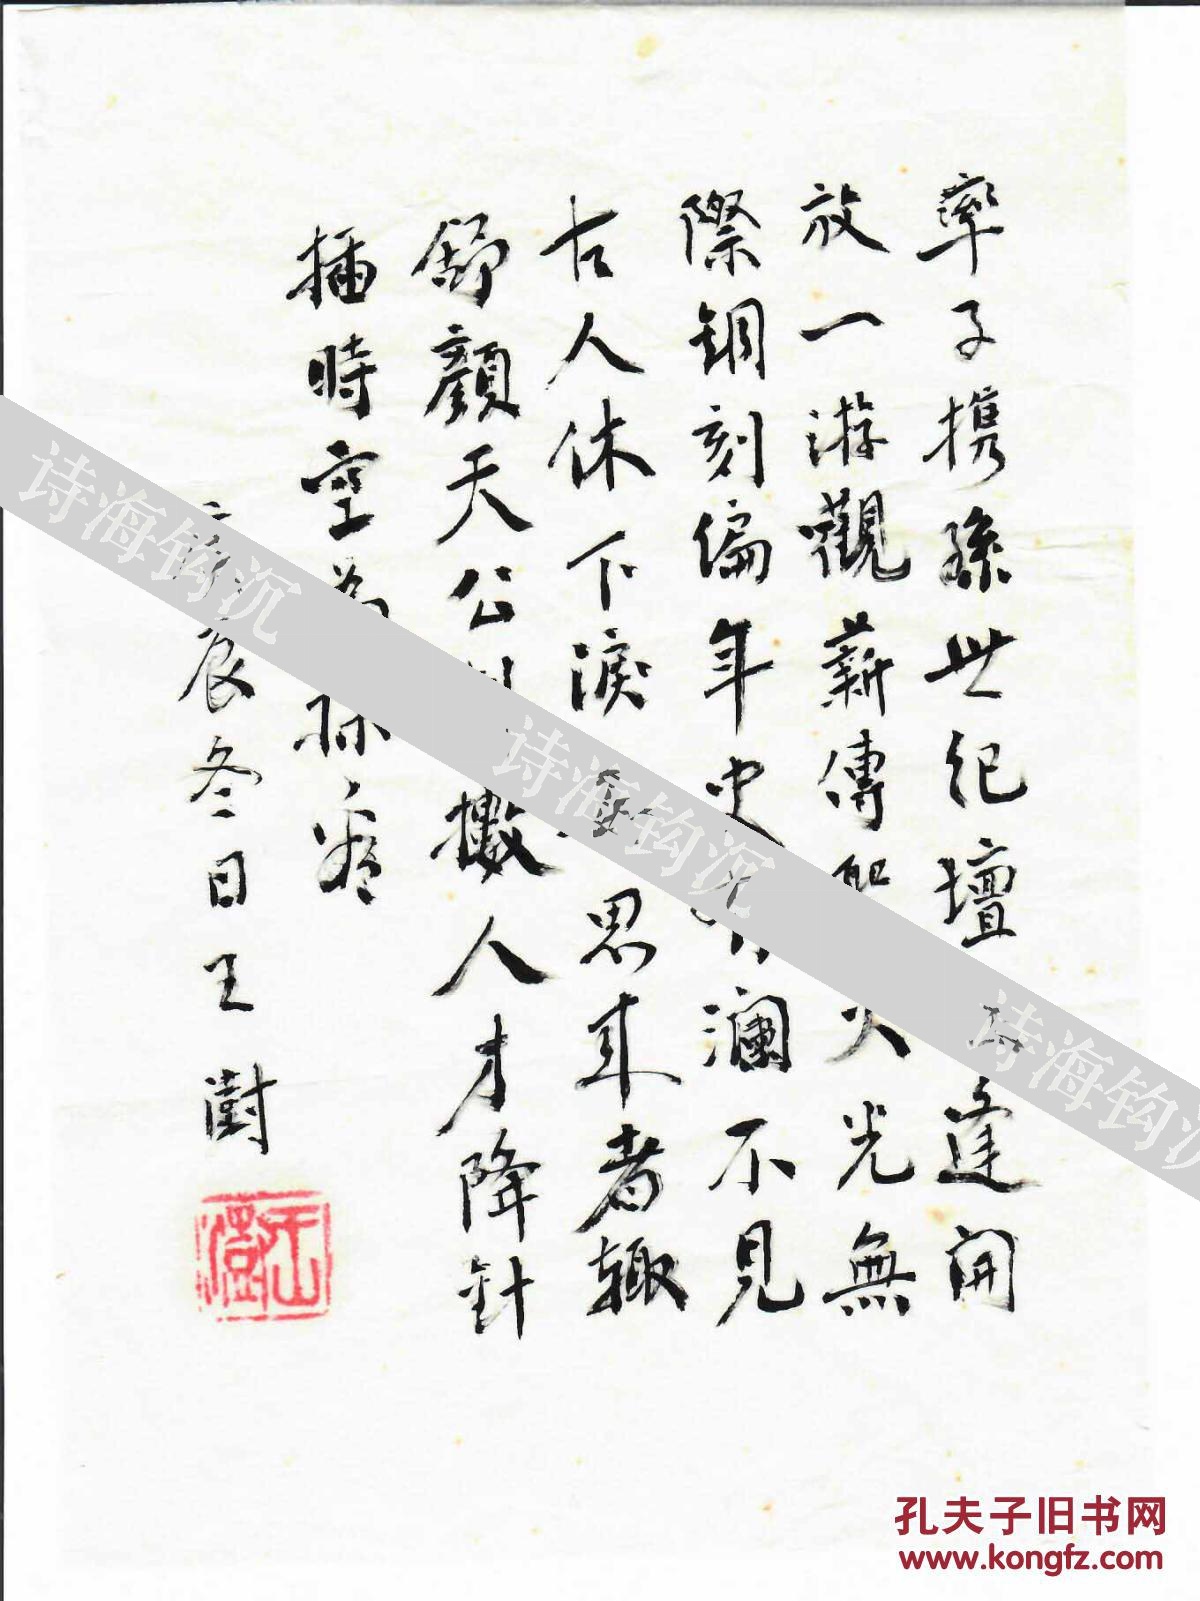 率子携孫世紀壇逢開
放一游觀薪傳聖火光無
際銅刻編年史有瀾不見
古人休下淚思来者輙
舒顏天公抖擻人才降針
插時空為
庚辰冬日王澍
王澍
诗海钩沉
诗海钩沉
诗海钩沉
孔夫子旧书网
www.kongfz.com